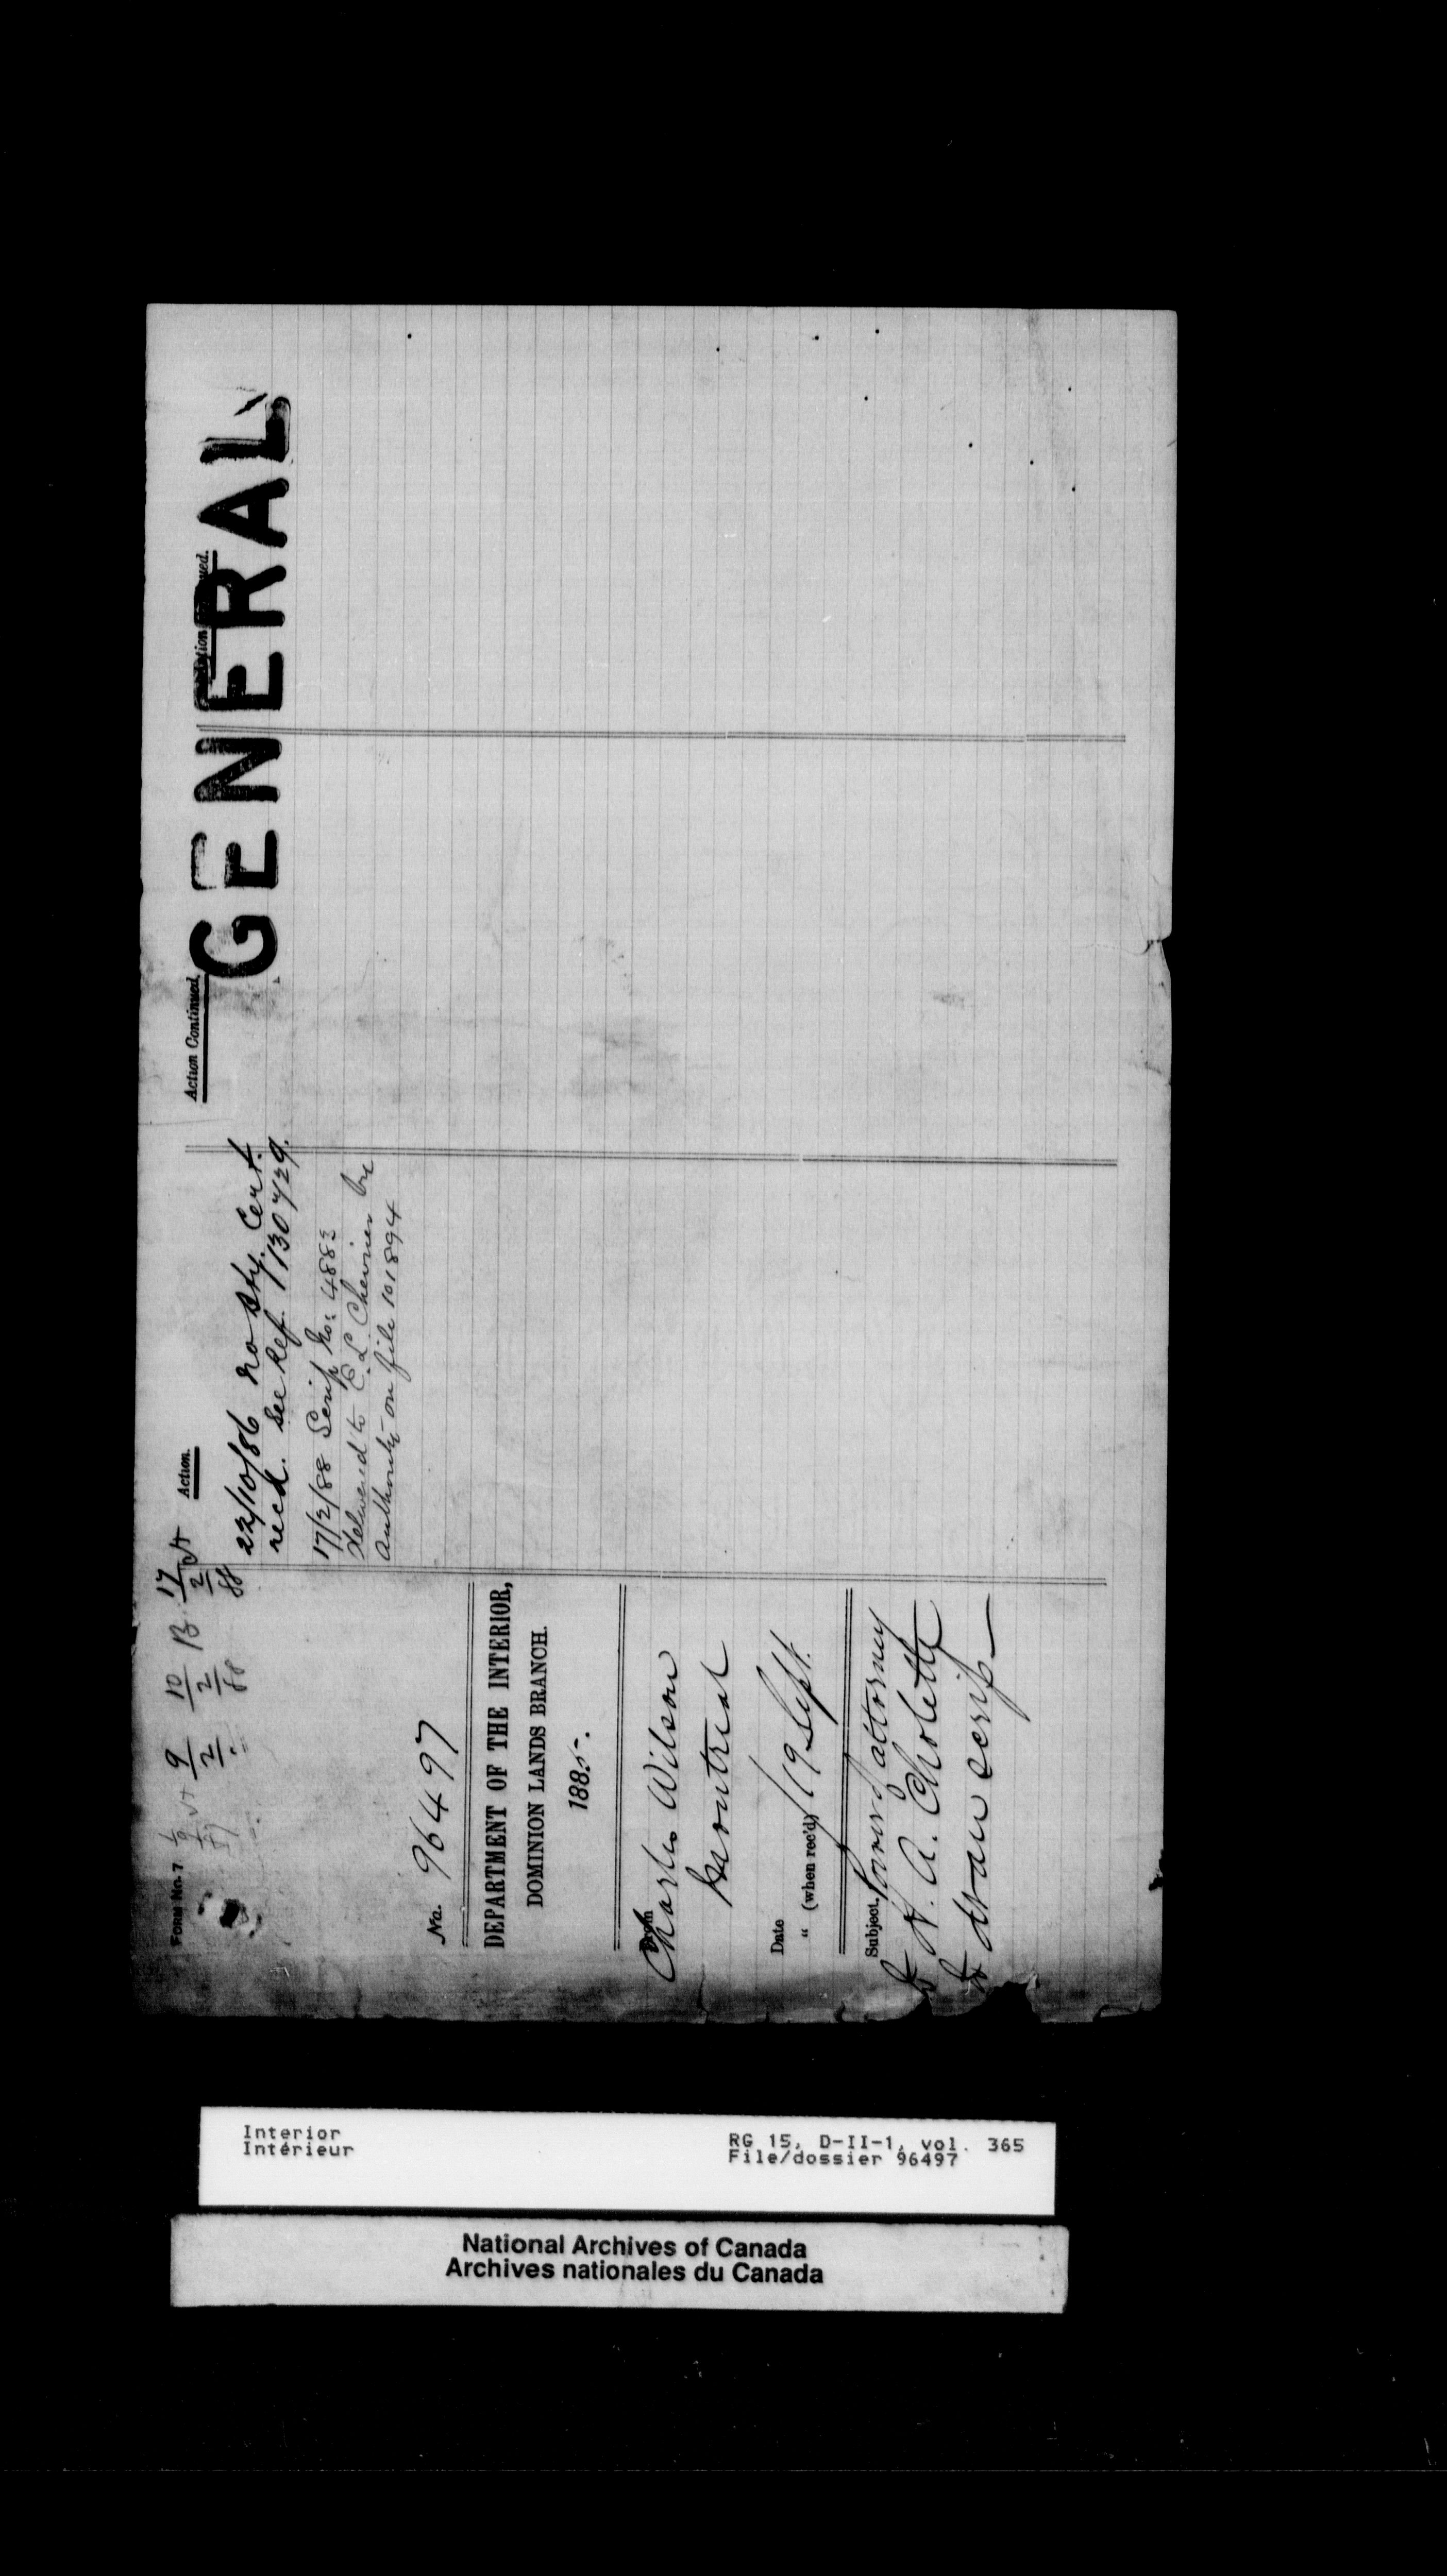 FORM No. 7
9/2
10/2/88 B.
17/2/88
No. 96497
DEPARTMENT OF THE INTERIOR,
DOMINION LANDS BRANCH.
1885.
From
Charles Wilson
Montreal
Date
" (when rec'd) 19 Sept.
Subject. Power of attorney
to N. A. Cholette
to draw scrip—
Action.
22/10/86 No Cert.
recd. See Ref. 130729.
17/2/88 Scrip No: 4883
Delivered to E. L. Chevrier
Authority on file 101894
Action Continued.
GENERAL
Interior
Intérieur
RG 15, D-II-1, vol. 365
File/dossier 96497
National Archives of Canada
Archives nationales du Canada